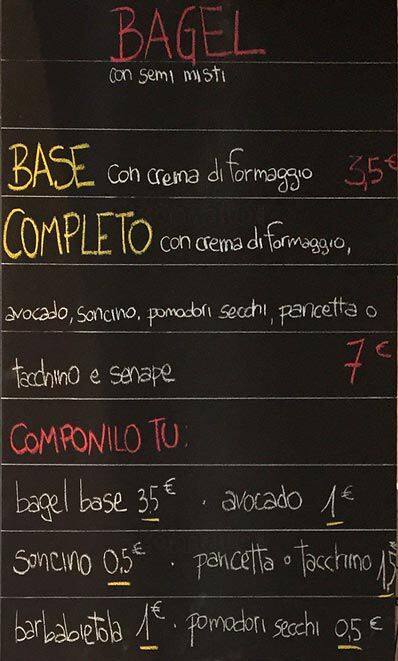 BAGEL
con semi misti
BASE con crema di formaggio 3,5€
COMPLETO con crema di formaggio,
avocado, soncino, pomodori secchi, pancetta o
tacchino e senape 7€
COMPONILO TU:
bagel base 3,5€ · avocado 1€
soncino 0,5€ · pancetta o tacchino 1,5
barbabietola 1€ · pomodori secchi 0,5€